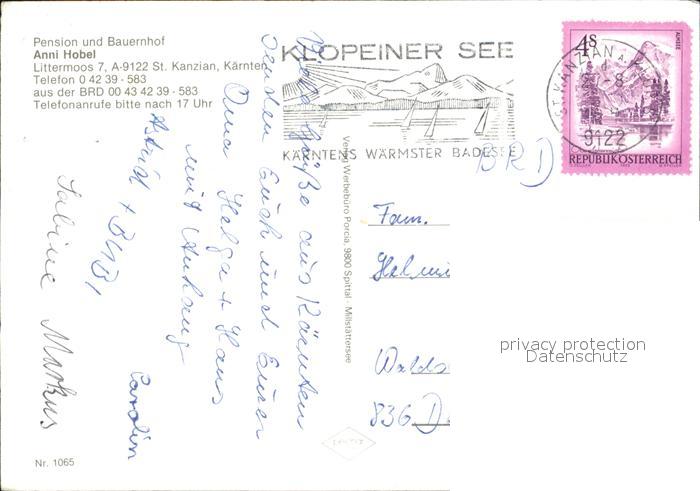 Pension und Bauernhof
Anni Hobel
Littermoos 7, A-9122 St. Kanzian, Kärnten
Telefon 0 42 39 - 583
aus der BRD 00 43 42 39 - 583
Telefonanrufe bitte nach 17 Uhr
KLOPEINER SEE
KÄRNTENS WÄRMSTER BADESEE
ST. KANZIAN
9122
4S
ALMSEE
REPUBLIK ÖSTERREICH
BRD
Grüße aus Kärnten
senden Euch und Eurer
Oma Helga + Hans
mit Anhang
Astrid +
Sabine Markus
Carolin
Verlag Werbebüro Porcia, 9800 Spittal - Millstättersee
Fam.
836
privacy protection
Datenschutz
Nr. 1065